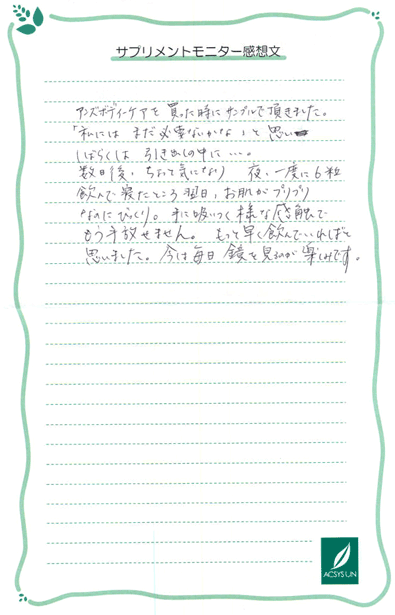 サプリメントモニター感想文
アンズボディーケアを買った時にサンプルで頂きました。
「私にはまだ必要ないかな」と思い
しばらくは引き出しの中に…。
数日後、ちょっと気になり 夜、一度に6粒
飲んで寝たところ翌日、お肌がプリプリ
なのにびっくり。手に吸いつく様な感触で
もう手放せません。もっと早く飲んでいればと
思いました。今は毎日鏡を見るのが楽しみです。
ACSYSUN